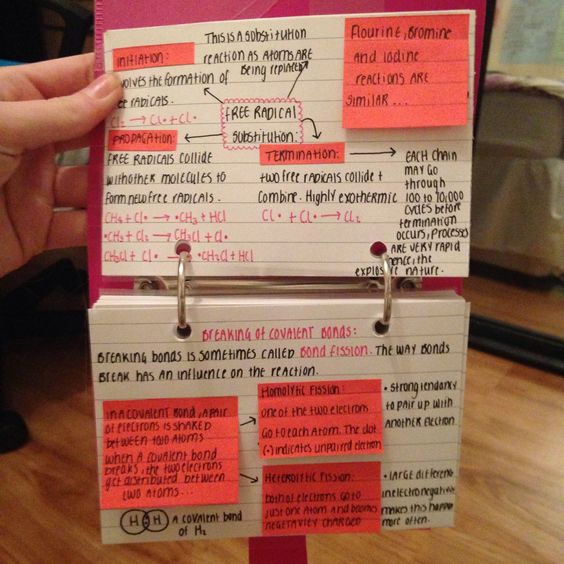 THIS IS A SUBSTITUTION
REACTION AS ATOMS ARE
BEING REPLACED
INITIATION:
VOLVES THE FORMATION OF
EE RADICALS.
Cl₂ → Cl• + Cl•
FREE RADICAL
SUBSTITUTION:
Flourine, Bromine
and Iodine
reactions are
similar ...
PROPAGATION:
FREE RADICALS COLLIDE
WITH OTHER MOLECULES TO
FORM NEW FREE RADICALS.
CH₄ + Cl• → •CH₃ + HCl
•CH₃ + Cl₂ → CH₃Cl + Cl•
CH₃Cl + Cl• → •CH₂Cl + HCl
TERMINATION:
TWO FREE RADICALS COLLIDE +
COMBINE. HIGHLY EXOTHERMIC
Cl• + Cl• → Cl₂
EACH CHAIN
MAY GO
THROUGH
100 TO 10,000
CYCLES BEFORE
TERMINATION
OCCURS, PROCESSES
ARE VERY RAPID
HENCE, THE
EXPLOSIVE NATURE.
BREAKING OF COVALENT BONDS:
BREAKING BONDS IS SOMETIMES CALLED BOND FISSION. THE WAY BONDS
BREAK HAS AN INFLUENCE ON THE REACTION.
IN A COVALENT BOND, A PAIR
OF ELECTRONS IS SHARED
BETWEEN TWO ATOMS
WHEN A COVALENT BOND
BREAKS, THE TWO ELECTRONS
GET DISTRIBUTED BETWEEN
TWO ATOMS...
H H A COVALENT BOND
OF H₂
HOMOLYTIC FISSION:
ONE OF THE TWO ELECTRONS
GO TO EACH ATOM. THE DOT
(•) INDICATES UNPAIRED ELECTRON
• STRONG TENDANCY
TO PAIR UP WITH
ANOTHER ELECTRON
HETEROLYTIC FISSION:
BOTH OF ELECTRONS GO TO
JUST ONE ATOM AND BECOMES
NEGATIVLY CHARGED
• LARGE DIFFERENC
IN ELECTRONEGATIVI
MAKES THIS HAPPE
MORE OFTEN.